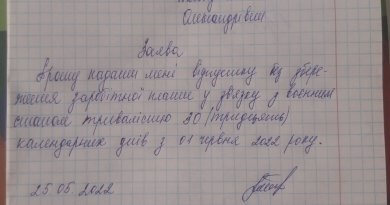 Олександрівни
Заява
Прошу надати мені відпустку без збере-
ження заробітної плати у зв'язку з воєнним
станом тривалістю 30 (тридцять)
календарних днів з 01 червня 2022 року.
25 05 2022